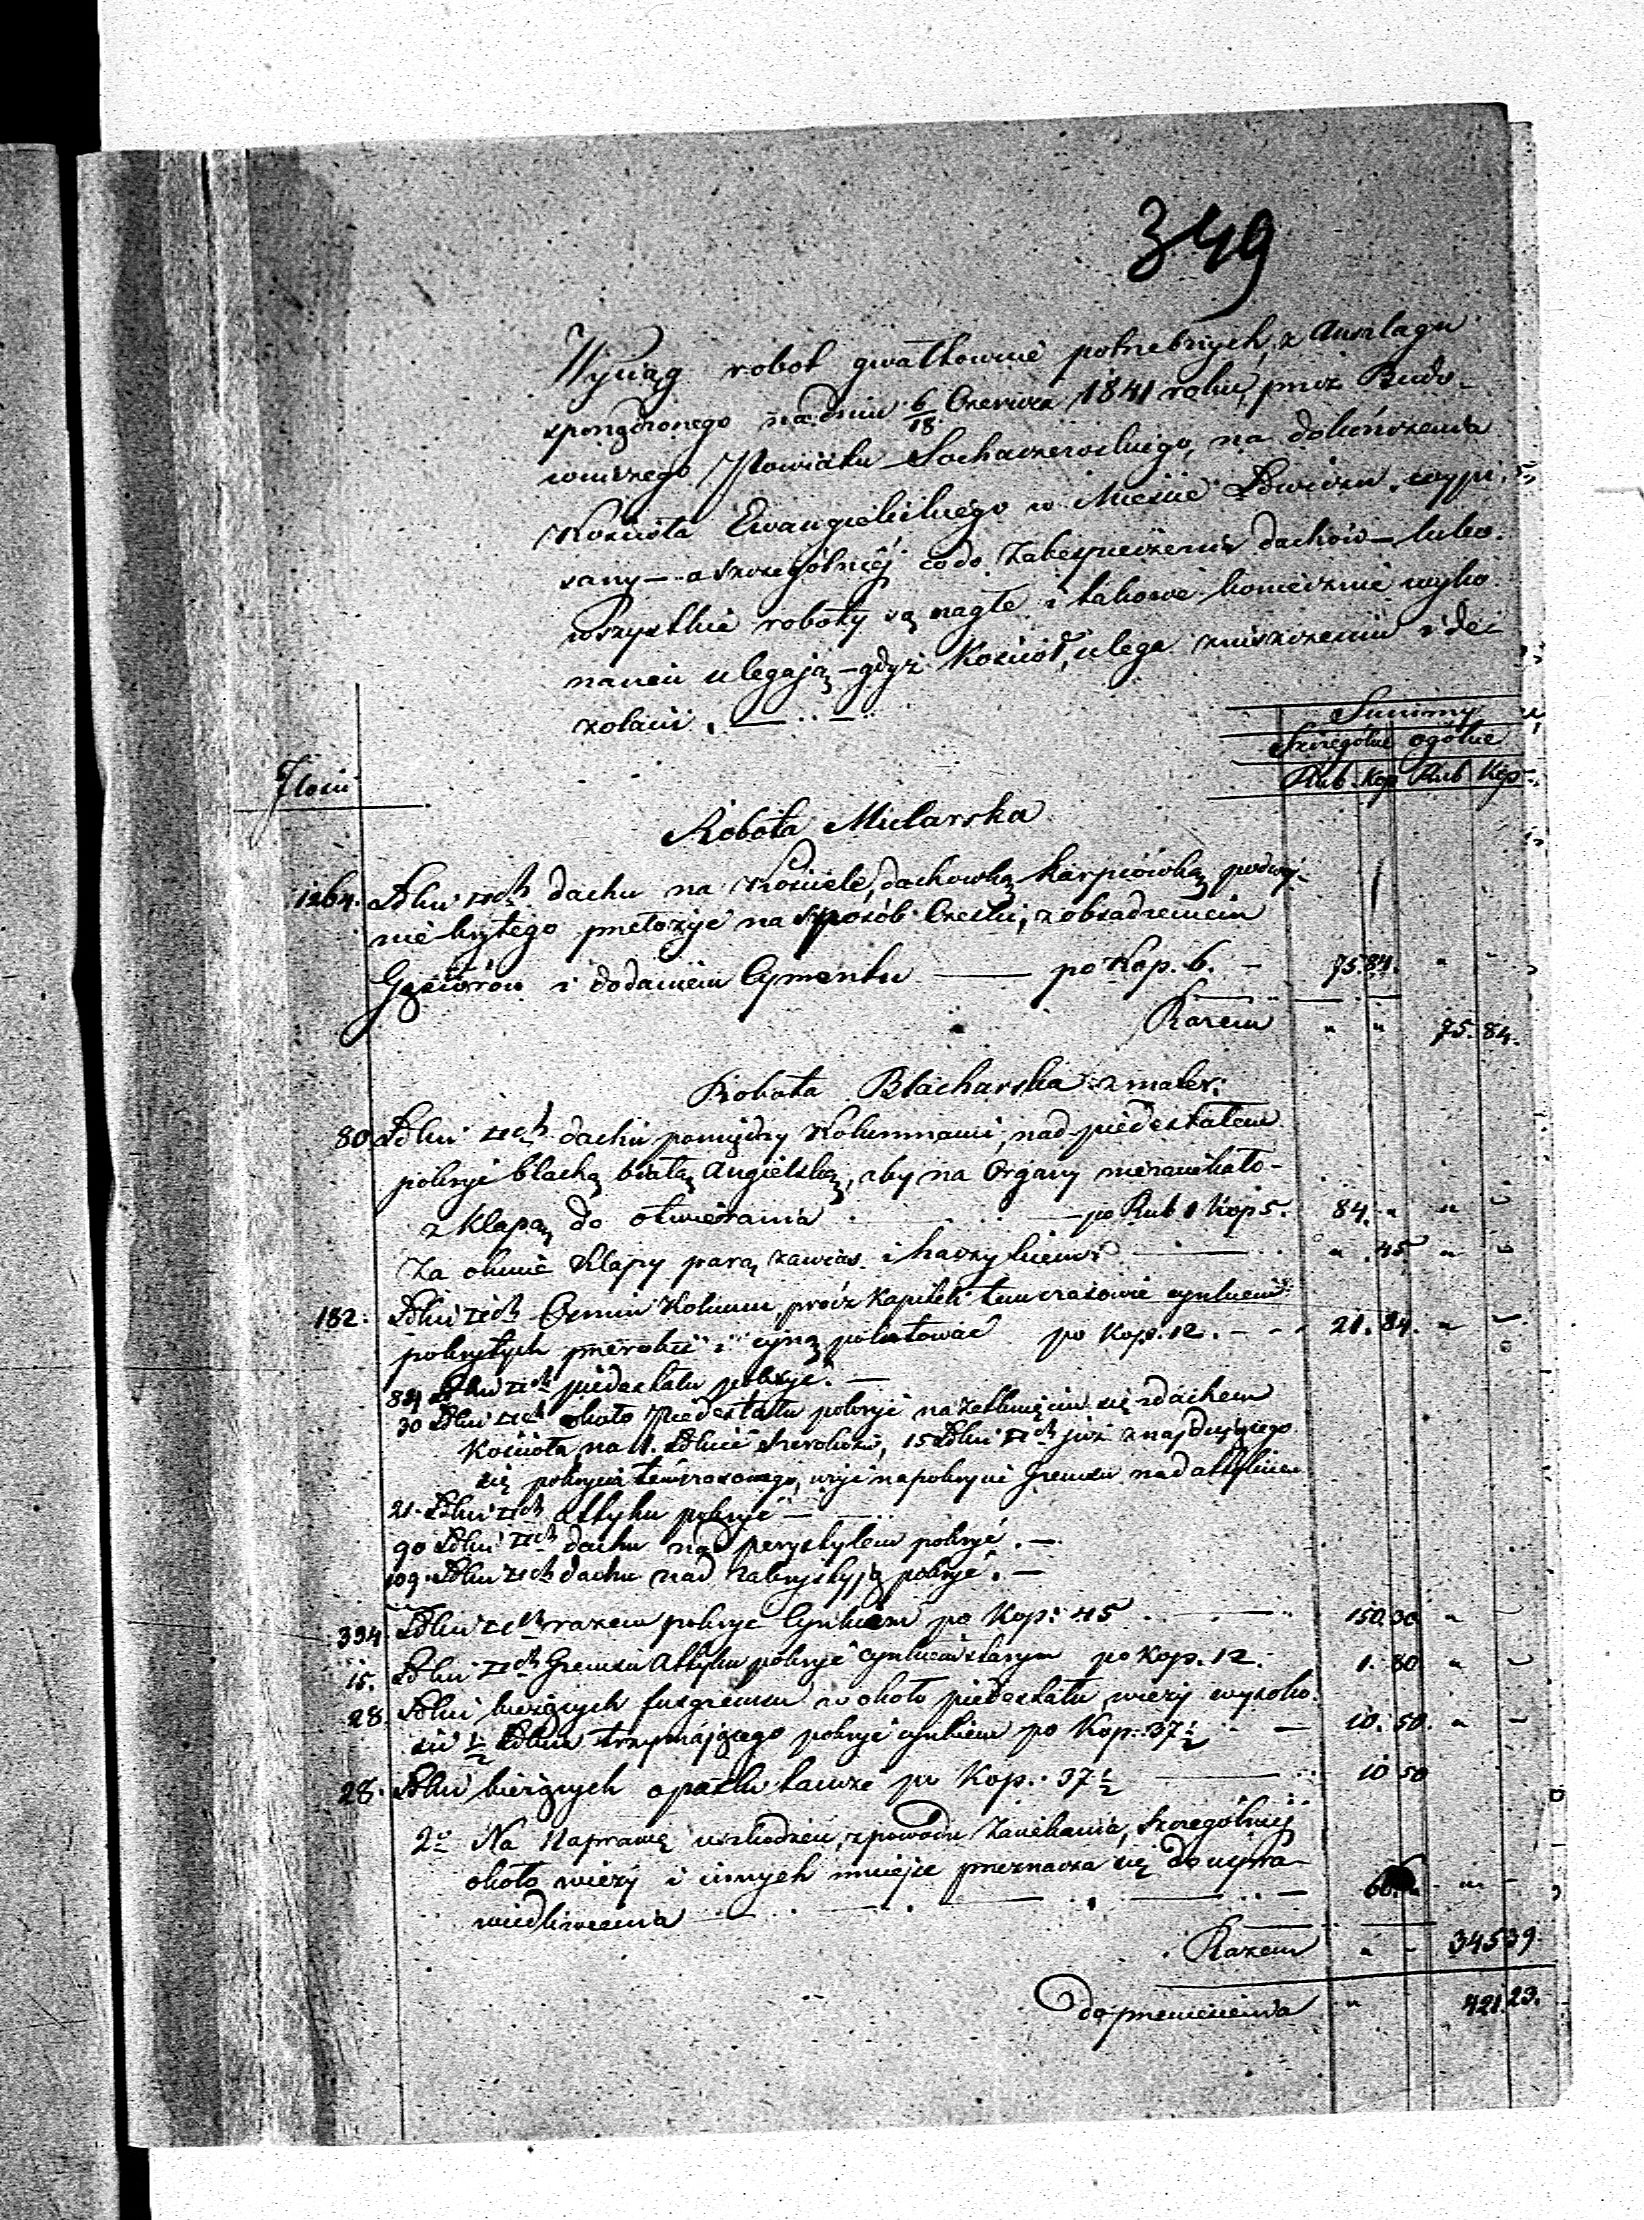 349
Wyciąg robot gwałtownie potrzebnych, z Anszlagu
sporządzonego na dniu 6/18 Czerwca 1841 roku, przez Budo-
wniczego Powiatu Sochaczewskiego, na dokończenia
Kościoła Ewangielickiego w Mieście Łowiczu wypi-
sany — a szczególniej co do Zabespieczenia dachów — lubo
wszystkie roboty są nagłe i takowe koniecznie wyko
naniu ulegają — gdyż Kościoł, ulega zniszczeniu i de
zolacii. —
Summy
Szczególne ogólne
Ilości Rub. Kop Rub Kop
Robota Mularska
1264. Łokci □ch dachu na Kościele, dachowką Karpiówką podwój-
nie krytego przełożyć na sposób Czeski, z obsadzeniem
Gąsiorów i dodaniem Cymentu — po Kop. 6. — 75. 84. " "
Razem " " 75. 84.
Robota Blacharska z mater:
80 Łokci □ch dachu pomiędzy Kolumnami, nad piedestałem
pokryć blachą białą Angielską, aby na Organy niezaciekało —
z Klapą do otwierania — po Rub 1 Kop 5. 84. " " "
Za okucie Klapy parą zawias i haczykiem — " 45 " "
182. Łokci □ch Ośmiu Kolumn prócz Kapiteli cynkiem
pokrytych i cyną polutować po Kop. 12. — 21. 84. " "
84 Łokci □ch piedestału pokryć. —
30 Łokci □ch około Piedestału pokryć na zetknięciu się z dachem
Kościoła, na 1. Łokieć szerokości, 15 Łokci □ch już znajdującego
się pokrycia użyć na pokrycie Gzemsu nad attykiem
21. Łokci □ch Attyku pokryć —
90 Łokci □ch dachu nad perystylem pokryć. —
109. Łokci □ch dachu nad Zakrystyją pokryć. —
334. Łokci □ch razem pokryć Cynkiem po Kop: 45 . — 150. 30 " "
15. Łokci □ch Gzemsu Attyku pokryć cynkiem starym po Kop. 12. 1. 80 " "
28. Łokci bieżących fusgzemsu w około piedestału wieży wysoko
ści ½ Łokcia trzymającego pokryć cynkiem po Kop: 37½ — 10. 50. " "
28. Łokci bieżących po Kop. 37½ — 10 50
2o Na Naprawę uszkodzeń, z powodu Zaciekania, Szczególniej
około wieży i innych miejsc przeznacza się do uspra-
wiedliwienia — 66. " " "
Razem " " 345 39.
do przeniesienia " 421. 23.